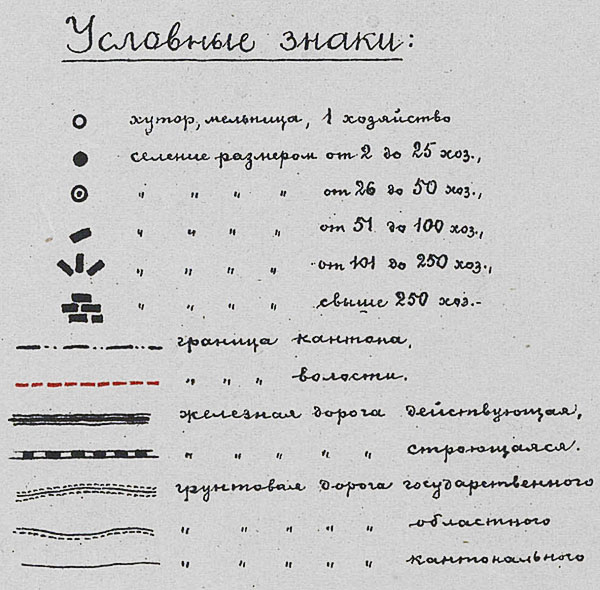 Условные знаки:
хутор, мельница, 1 хозяйство
селение размером от 2 до 25 хоз.,
" " " " от 26 до 50 хоз.,
" " " " от 51 до 100 хоз.,
" " " " от 101 до 250 хоз.,
" " " " свыше 250 хоз.-
граница кантона,
" " " волости.
железная дорога действующая,
" " " " " строющаяся.
грунтовая дорога государственного
" " " " " областного
" " " " " кантонального